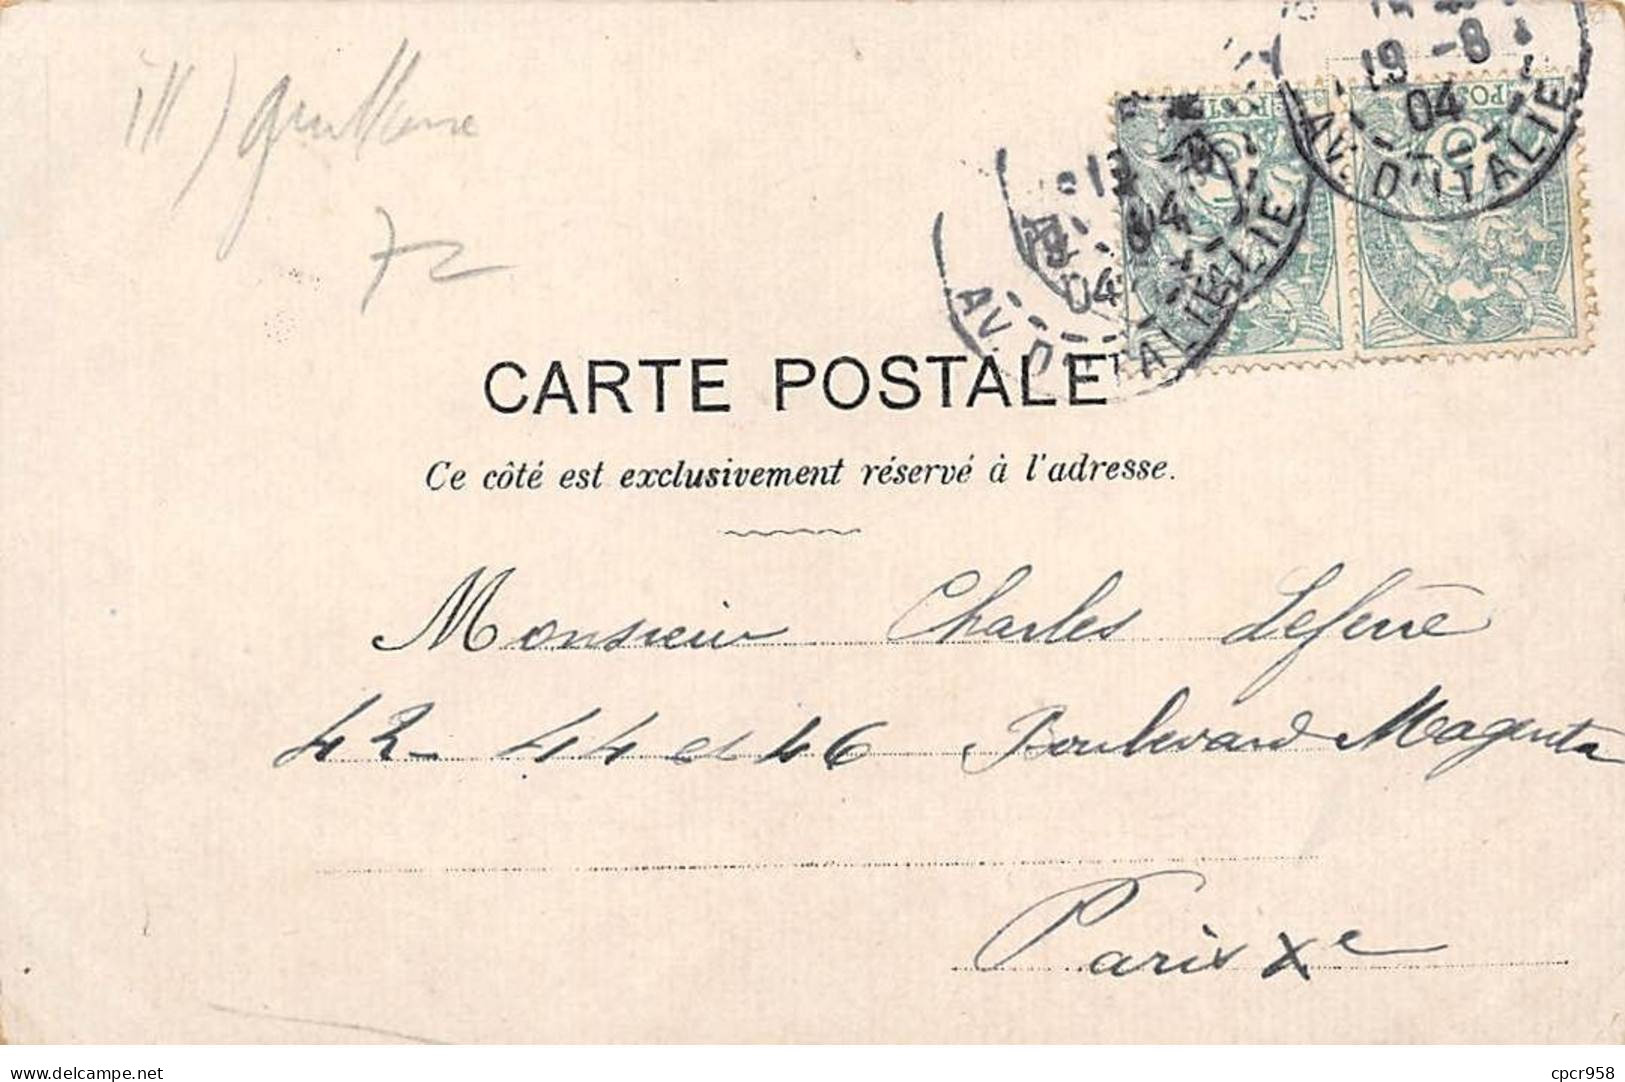 ill) Guillaume
72
19 -8
04
AV. D'ITALIE
04
AV. D'ITALIE
04
AV. D'ITALIE
POSTES
5
CARTE POSTALE
Ce côté est exclusivement réservé à l'adresse.
Monsieur Charles Lefevre
42 44 et 46 Boulevard Magenta
Paris Xe
www.delcampe.net
cpcr958